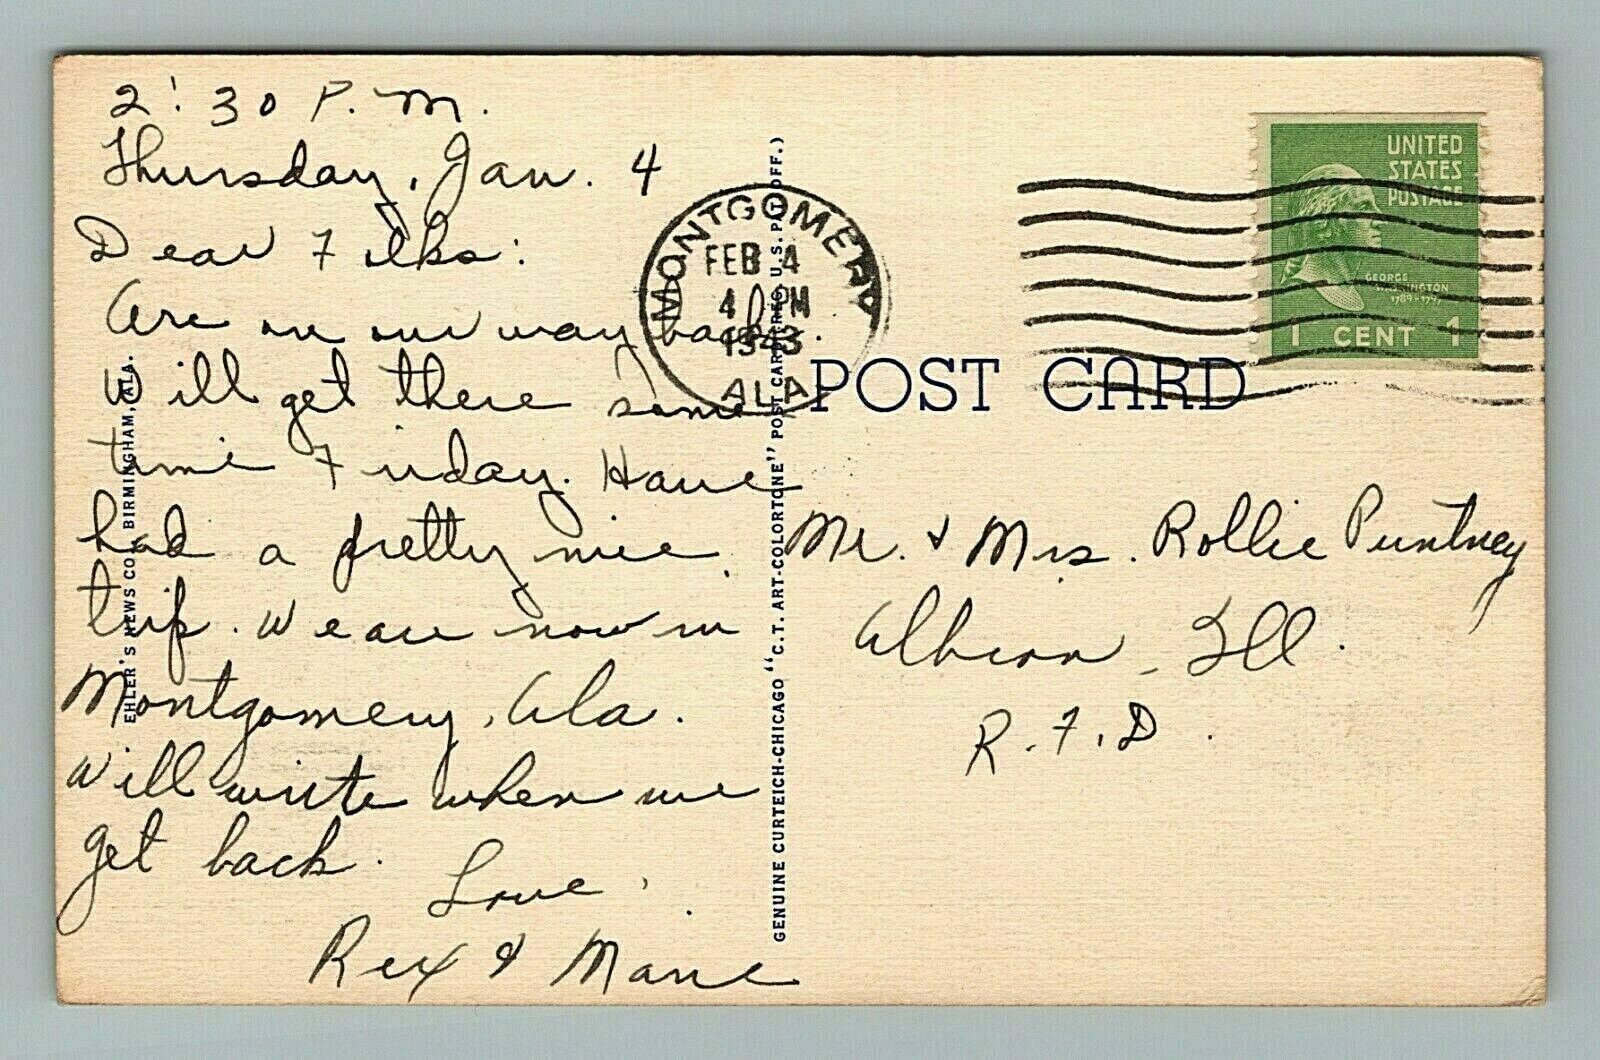 2:30 P.M.
Thursday, Jan. 4
Dear Folks:
Are on our way back.
Will get there some
time Friday. Have
had a pretty nice
trip. We are now in
Montgomery, Ala.
Will write when we
get back.
Love,
Rex & Marie
EHLER'S NEWS CO., BIRMINGHAM, ALA.
GENUINE CURTEICH-CHICAGO "C.T. ART-COLORTONE" POST CARD (REG. U.S. PAT. OFF.)
MONTGOMERY
FEB 4
4 PM
1943
ALA
POST CARD
UNITED
STATES
POSTAGE
GEORGE
WASHINGTON
1789-1797
1 CENT 1
Mr. & Mrs. Rollie Puntney
Albion, Ill.
R.F.D.